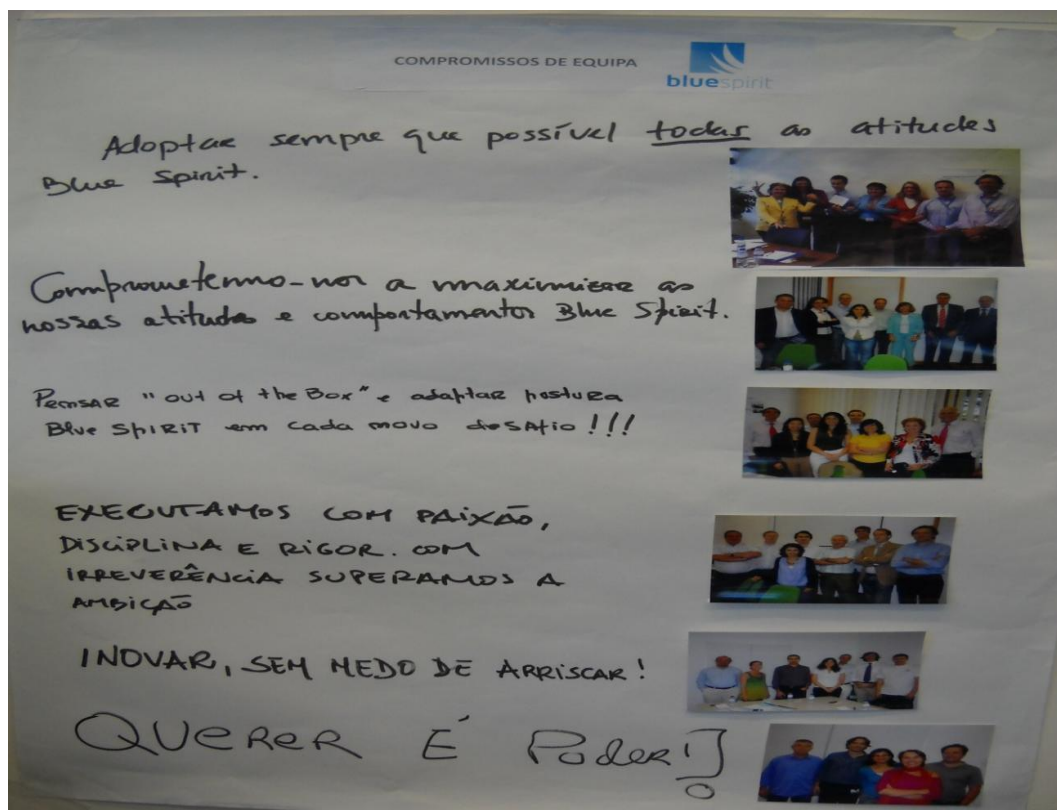 COMPROMISSOS DE EQUIPA
bluespirit
Adoptar sempre que possível todas as atitudes
Blue Spirit.
Comprometermo-nos a maximizar as
nossas atitudes e comportamentos Blue Spirit.
Pensar "out of the Box" e adaptar postura
Blue Spirit em cada novo desafio!!!
EXECUTAMOS COM PAIXÃO,
DISCIPLINA E RIGOR. COM
IRREVERÊNCIA SUPERAMOS A
AMBIÇÃO
INOVAR, SEM MEDO DE ARRISCAR!
QUERER É Poder!